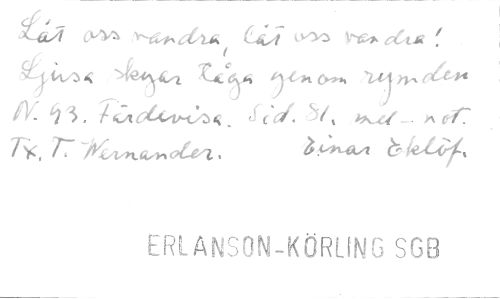 Låt oss vandra, låt oss vandra!
Ljusa skyar tåga genom rymden
N. 93. Färdevisa. Sid. 81. mel - not.
Tx. T. Nernander. Einar Eklöf.
ERLANSON-KÖRLING SGB